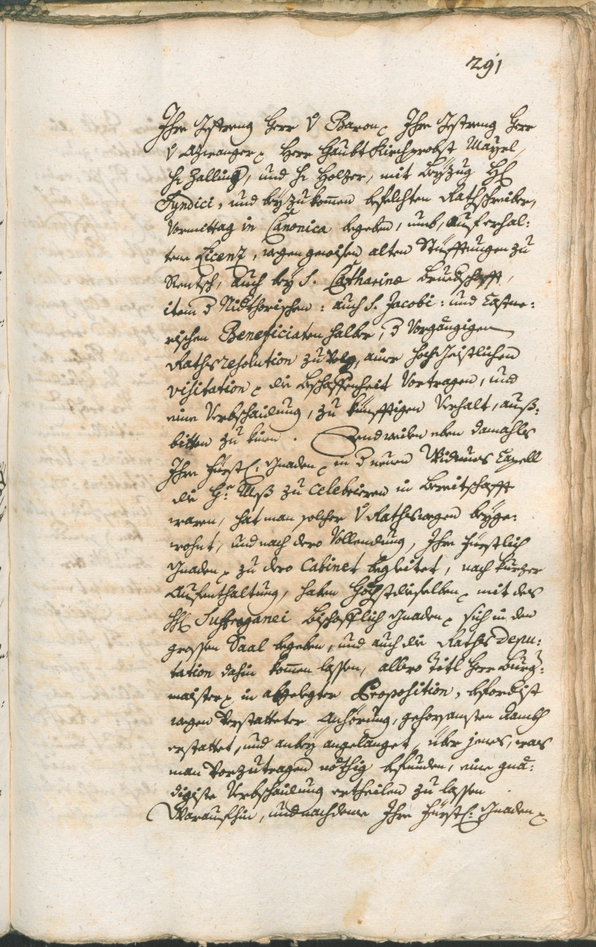 291
Ihre Gestreng Herr V Baron, Ihre Gestreng Herr
V Herr Haubt Kirchprobst Mayrl,
H. Zalling, und H. Holzer, mit beyzug H.
Syndici, und beyzukommen befelchten Rathschreiber,
Vormittag in Canonica begeben, umb, auf erhal-
tene Licenz, wegen gewisen alten Stüfftungen zu
Rentsch, auch bey S. Catharinæ Bruederschafft,
item : auch S. Jacobi : und
rischen Beneficiaten halber, Vorgängigen
Rathsresolution zu Volg, ainer hochgeistlichen
visitation die beschaffenheit Vortragen, und
eine Verbschaidung, zu künfftigen Verhalt, auß-
bitten zu kinen. Und weilen eben damahls
Ihre Fürstl: Gnaden in neuen Widumbs Capell
die H: Meß zu Celebrieren in bereitschafft
waren, hat man solcher V Rathswegen beyge-
wohnt, und nach dero Vollendung, Ihre Fürstlich
Gnaden zu dero Cabinet begleitet, nach kurzer
Aufenthaltung, haben Höchstdieselben mit des
H: Suffraganei Bischofflich Gnaden sich in den
grossen Saal begeben, und auch die Raths Depu-
tation dahin komen lassen, allwo Titl Herr Burg-
maister in abgelegter Proposition, beforderist
wegen Verstatteter Anhörung, gehorsamsten danckh
erstattet, und anbey angelanget, über jenes, was
man Vorzutragen nöthig befunden, eine gnä-
digiste Verbschaidung ertheilen zu lassen.
Woraufhin, und nachdeme Ihre Fürstl: Gnaden